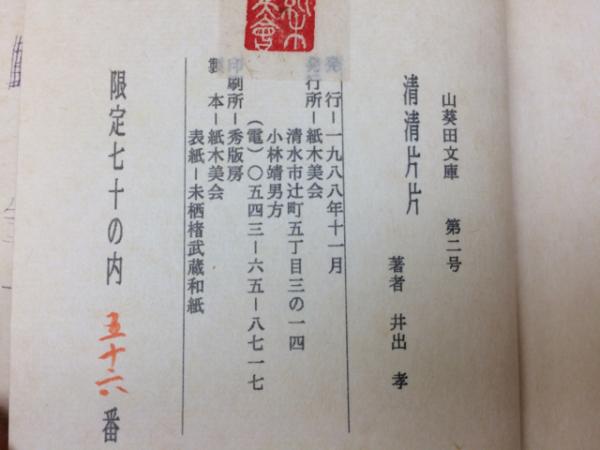 山葵田文庫 第二号
清清片片
著者 井出 孝
発 行ー一九八八年十一月
発行所ー紙木美会
清水市辻町五丁目三の一四
小林靖男方
(電)〇五四三ー六五ー八七一七
印刷所ー秀版房
製 本ー紙木美会
表紙ー未栖楮武蔵和紙
限定七十の内 五十六番